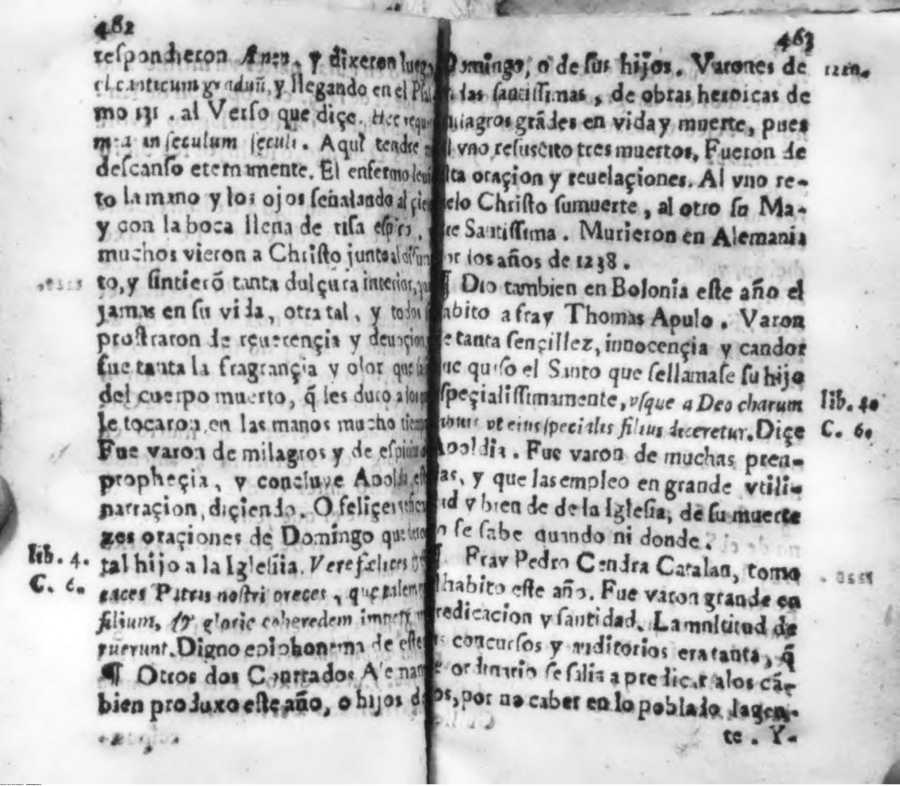 482
respondieron Amen, y dixeron luego
el canticum graduũ, y llegando en el
mo 131. al Verso que diçe. Hec
mea in seculum seculi. Aqui tendre
descanso eternamente. El enfermo
to la mano y los ojos señalando al
y con la boca llena de risa espiro,
muchos vieron a Christo junto al
to, y sintierõ tanta dulçura interior,
jamas en su vida, otra tal, y todos
prostraron de reuerençia y deuoçion
fue tanta la fragrançia y olor que
del cuerpo muerto, q̃ les duro a los
le tocaron en las manos mucho
Fue varon de milagros y de
propheçia, y concluye Apoldi
narraçion, diçiendo. O feliçes
zes oraçiones de Domingo que
lib. 4.
C. 6.
tal hijo a la Iglesiia. Vere fælices
caces Patris nostri preces, que talem
filium, & glorie coheredem
ruerunt. Digno epiphonema de este
¶ Otros dos Conrrados Ale
bien produxo este año, o hijos
463
Domingo, o de sus hijos. Varones de
las santissimas, de obras heroicas de
milagros grãdes en vida y muerte, pues
l vno resuscito tres muertos, Fueron de
lta oraçion y reuelaçiones. Al vno re-
elo Christo sumuerte, al otro su Ma-
re Santissima. Murieron en Alemania
or los años de 1238.
¶ Dio tambien en Bolonia este año el
abito a fray Thomas Apulo. Varon
e tanta sençillez, innocençia y candor
ue quiso el Santo que sellamase su hijo
speçialissimamente, vsque a Deo charum
lib. 4.
ut eius specialis filius diceretur. Diçe
C. 6.
Apoldia. Fue varon de muchas pren-
das, y que las empleo en grande vtili-
ad y bien de de la Iglesia, de su muerte
o se sabe quando ni donde.
¶ Fray Pedro Cendra Catalan, tomo
habito este año. Fue varon grande en
redicacion y santidad. La multitud de
concursos y auditorios era tanta, q̃
e ordinario se salia a predicar a los cã-
os, por no caber en lo poblado la gen-
te. Y-